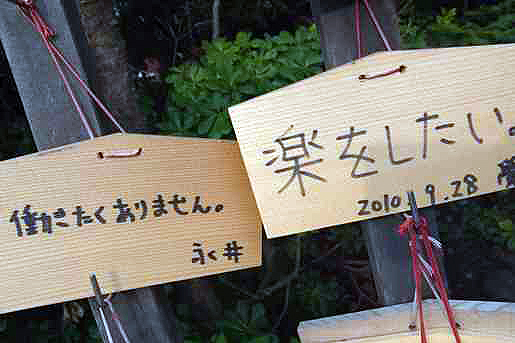 働きたくありません。
永く井
楽をしたい。
2010.9.28